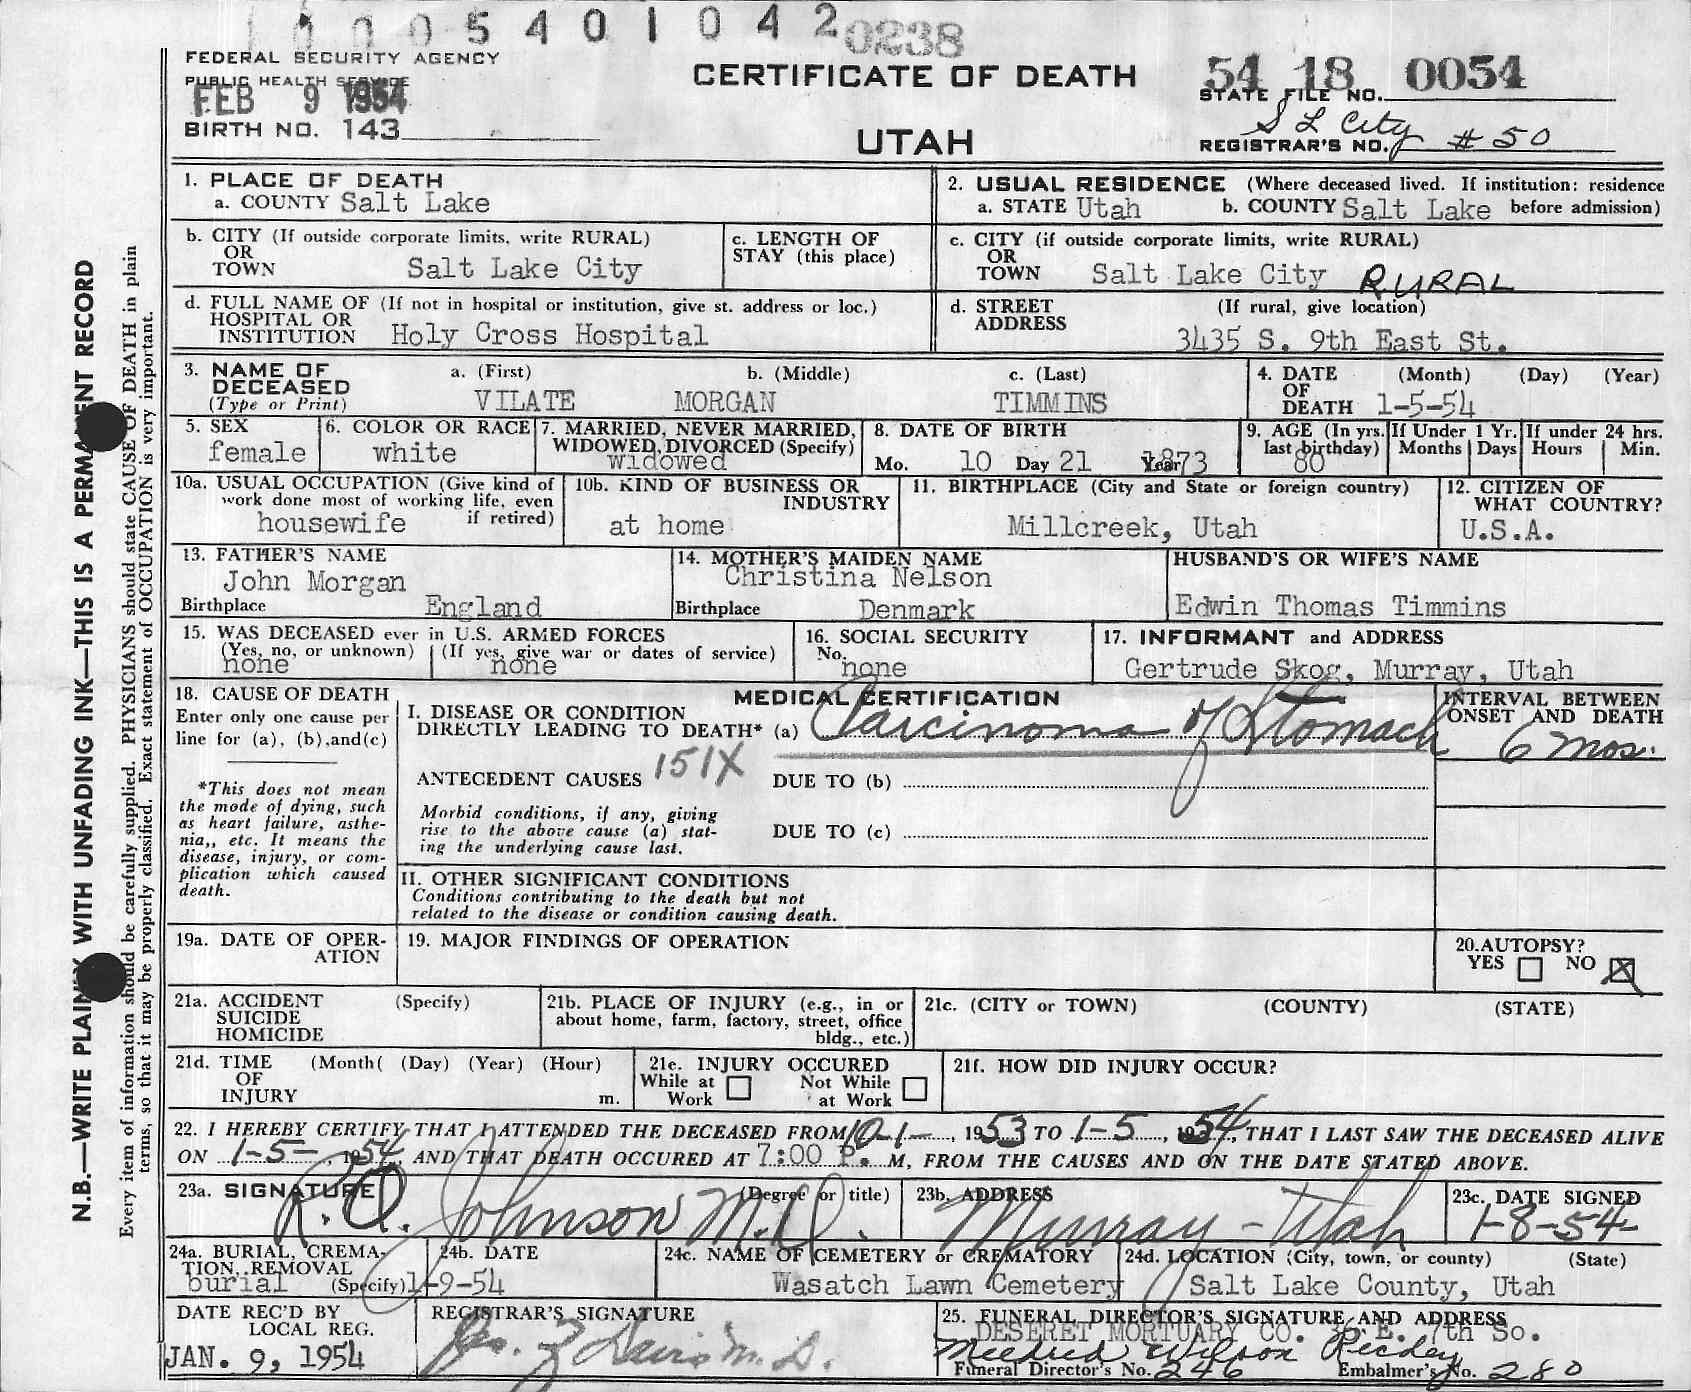 0 0 0 5 4 0 1 0 4 2 0238
FEDERAL SECURITY AGENCY
PUBLIC HEALTH SERVICE
FEB 9 1954
BIRTH NO. 143
CERTIFICATE OF DEATH
UTAH
54 18 0054
STATE FILE NO.
S L City
REGISTRAR'S NO. # 50
1. PLACE OF DEATH
a. COUNTY Salt Lake
2. USUAL RESIDENCE (Where deceased lived. If institution: residence
a. STATE Utah b. COUNTY Salt Lake before admission)
b. CITY (If outside corporate limits, write RURAL)
OR
TOWN Salt Lake City
c. LENGTH OF
STAY (this place)
c. CITY (if outside corporate limits, write RURAL)
OR
TOWN Salt Lake City RURAL
d. FULL NAME OF (If not in hospital or institution, give st. address or loc.)
HOSPITAL OR
INSTITUTION Holy Cross Hospital
d. STREET (If rural, give location)
ADDRESS
3435 S. 9th East St.
3. NAME OF a. (First) b. (Middle) c. (Last)
DECEASED
(Type or Print) VILATE MORGAN TIMMINS
4. DATE (Month) (Day) (Year)
OF
DEATH 1-5-54
5. SEX
female
6. COLOR OR RACE
white
7. MARRIED, NEVER MARRIED,
WIDOWED, DIVORCED (Specify)
widowed
8. DATE OF BIRTH
Mo. 10 Day 21 Year 1873
9. AGE (In yrs.
last birthday)
80
If Under 1 Yr.
Months Days
If under 24 hrs.
Hours Min.
10a. USUAL OCCUPATION (Give kind of
work done most of working life, even
housewife if retired)
10b. KIND OF BUSINESS OR
INDUSTRY
at home
11. BIRTHPLACE (City and State or foreign country)
Millcreek, Utah
12. CITIZEN OF
WHAT COUNTRY?
U.S.A.
13. FATHER'S NAME
John Morgan
Birthplace England
14. MOTHER'S MAIDEN NAME
Christina Nelson
Birthplace Denmark
HUSBAND'S OR WIFE'S NAME
Edwin Thomas Timmins
15. WAS DECEASED ever in U.S. ARMED FORCES
(Yes, no, or unknown) (If yes, give war or dates of service)
none none
16. SOCIAL SECURITY
No.
none
17. INFORMANT and ADDRESS
Gertrude Skog, Murray, Utah
18. CAUSE OF DEATH
Enter only one cause per
line for (a), (b),and(c)
*This does not mean
the mode of dying, such
as heart failure, asthe-
nia,, etc. It means the
disease, injury, or com-
plication which caused
death.
MEDICAL CERTIFICATION
I. DISEASE OR CONDITION
DIRECTLY LEADING TO DEATH* (a) Carcinoma of Stomach
INTERVAL BETWEEN
ONSET AND DEATH
6 mos.
ANTECEDENT CAUSES 151X DUE TO (b)
Morbid conditions, if any, giving
rise to the above cause (a) stat-
ing the underlying cause last.
DUE TO (c)
II. OTHER SIGNIFICANT CONDITIONS
Conditions contributing to the death but not
related to the disease or condition causing death.
19a. DATE OF OPER-
ATION
19. MAJOR FINDINGS OF OPERATION
20.AUTOPSY?
YES NO X
21a. ACCIDENT (Specify)
SUICIDE
HOMICIDE
21b. PLACE OF INJURY (e.g., in or
about home, farm, factory, street, office
bldg., etc.)
21c. (CITY or TOWN) (COUNTY) (STATE)
21d. TIME (Month( (Day) (Year) (Hour)
OF
INJURY m.
21e. INJURY OCCURED
While at Not While
Work at Work
21f. HOW DID INJURY OCCUR?
22. I HEREBY CERTIFY THAT I ATTENDED THE DECEASED FROM 10-1-, 1953 TO 1-5, 1954, THAT I LAST SAW THE DECEASED ALIVE
ON 1-5-, 1954, AND THAT DEATH OCCURED AT 7:00 P. M, FROM THE CAUSES AND ON THE DATE STATED ABOVE.
23a. SIGNATURE (Degree or title)
R.A. Johnson M.D.
23b. ADDRESS
Murray - Utah
23c. DATE SIGNED
1-8-54
24a. BURIAL, CREMA-
TION, REMOVAL
burial (Specify)
24b. DATE
1-9-54
24c. NAME OF CEMETERY or CREMATORY
Wasatch Lawn Cemetery
24d. LOCATION (City, town, or county) (State)
Salt Lake County, Utah
DATE REC'D BY
LOCAL REG.
JAN. 9, 1954
REGISTRAR'S SIGNATURE
M.D.
25. FUNERAL DIRECTOR'S SIGNATURE AND ADDRESS
DESERET MORTUARY CO. 36 E. 7th So.
Mildred Wilson
Funeral Director's No. 246 Embalmer's No. 280
N.B.—WRITE PLAINLY WITH UNFADING INK—THIS IS A PERMANENT RECORD
Every item of information should be carefully supplied. PHYSICIANS should state CAUSE OF DEATH in plain
terms, so that it may be properly classified. Exact statement of OCCUPATION is very important.